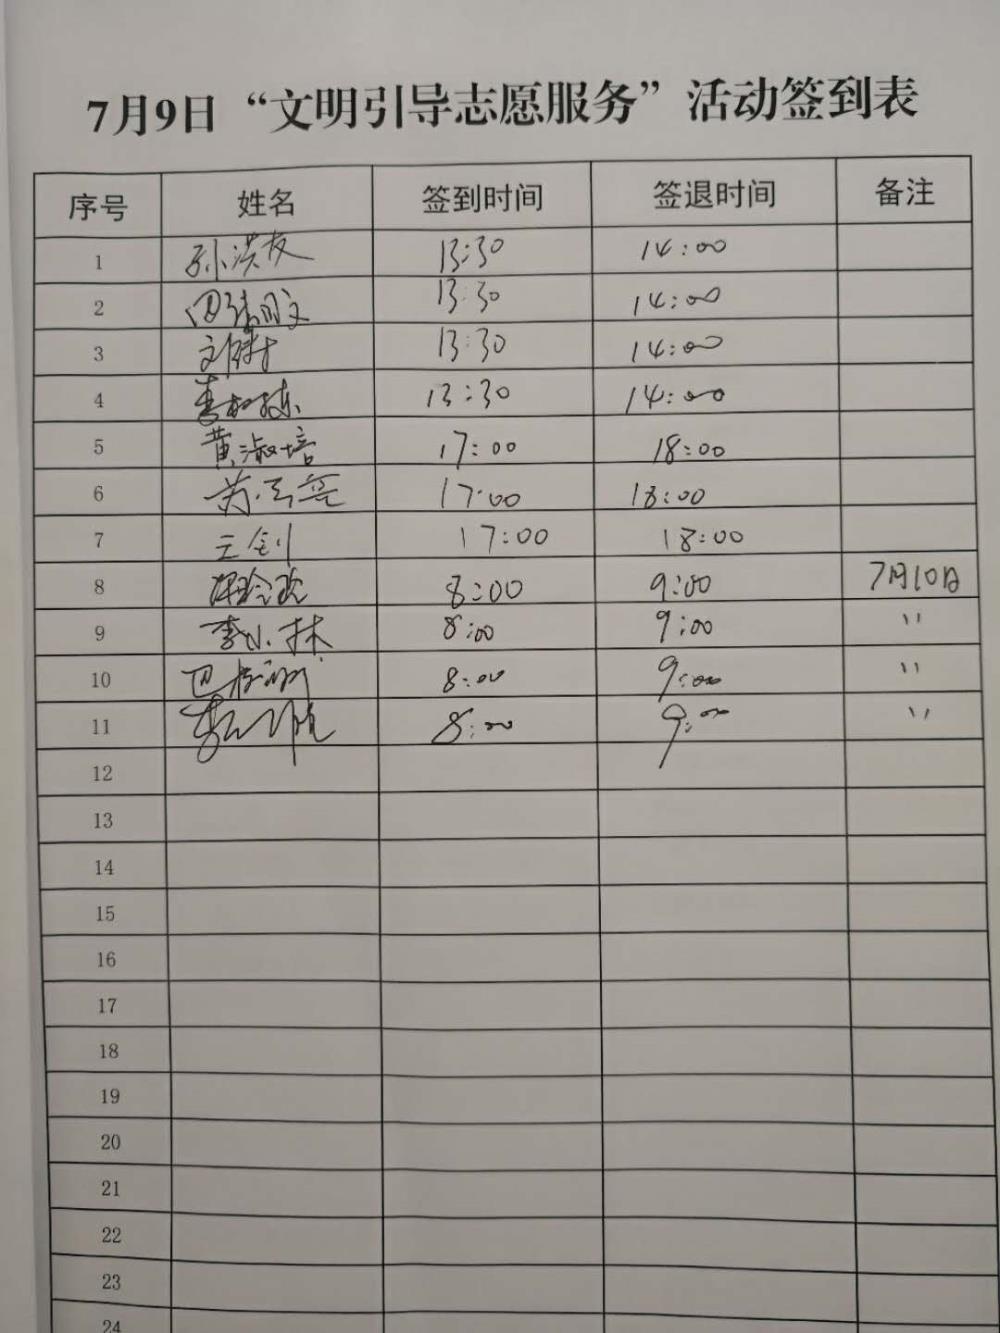 7月9日“文明引导志愿服务”活动签到表
序号 姓名 签到时间 签退时间 备注
1 孙洪友 13:30 14:00
2 13:30 14:00
3 13:30 14:00
4 13:30 14:00
5 黄淑培 17:00 18:00
6 17:00 18:00
7 王钊 17:00 18:00
8 8:00 9:00 7月10日
9 李小林 8:00 9:00 〃
10 8:00 9:00 〃
11 8:00 9:00 〃
12
13
14
15
16
17
18
19
20
21
22
23
24